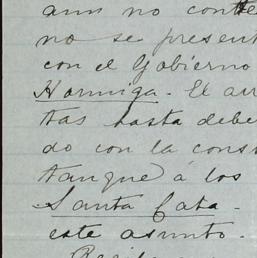 aun no conte
no se present
con el Gobierno
Hormiga. El arr
tas hasta debe
do con la cons
tanque á los
Santa Cata-
este asunto.